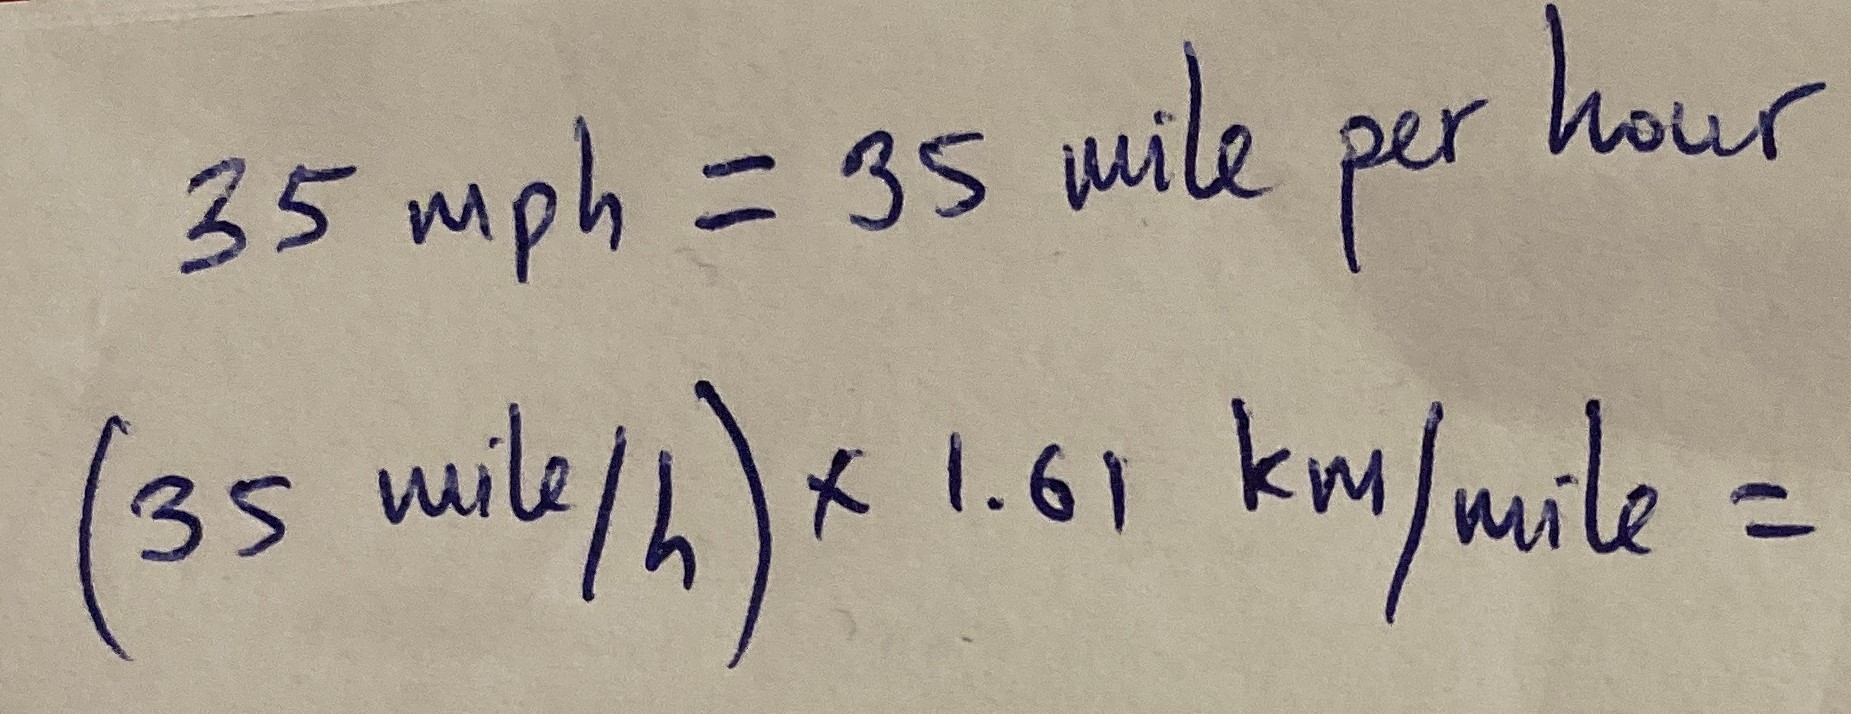 35 mph = 35 mile per hour
(35 mile/h) x 1.61 km/mile =